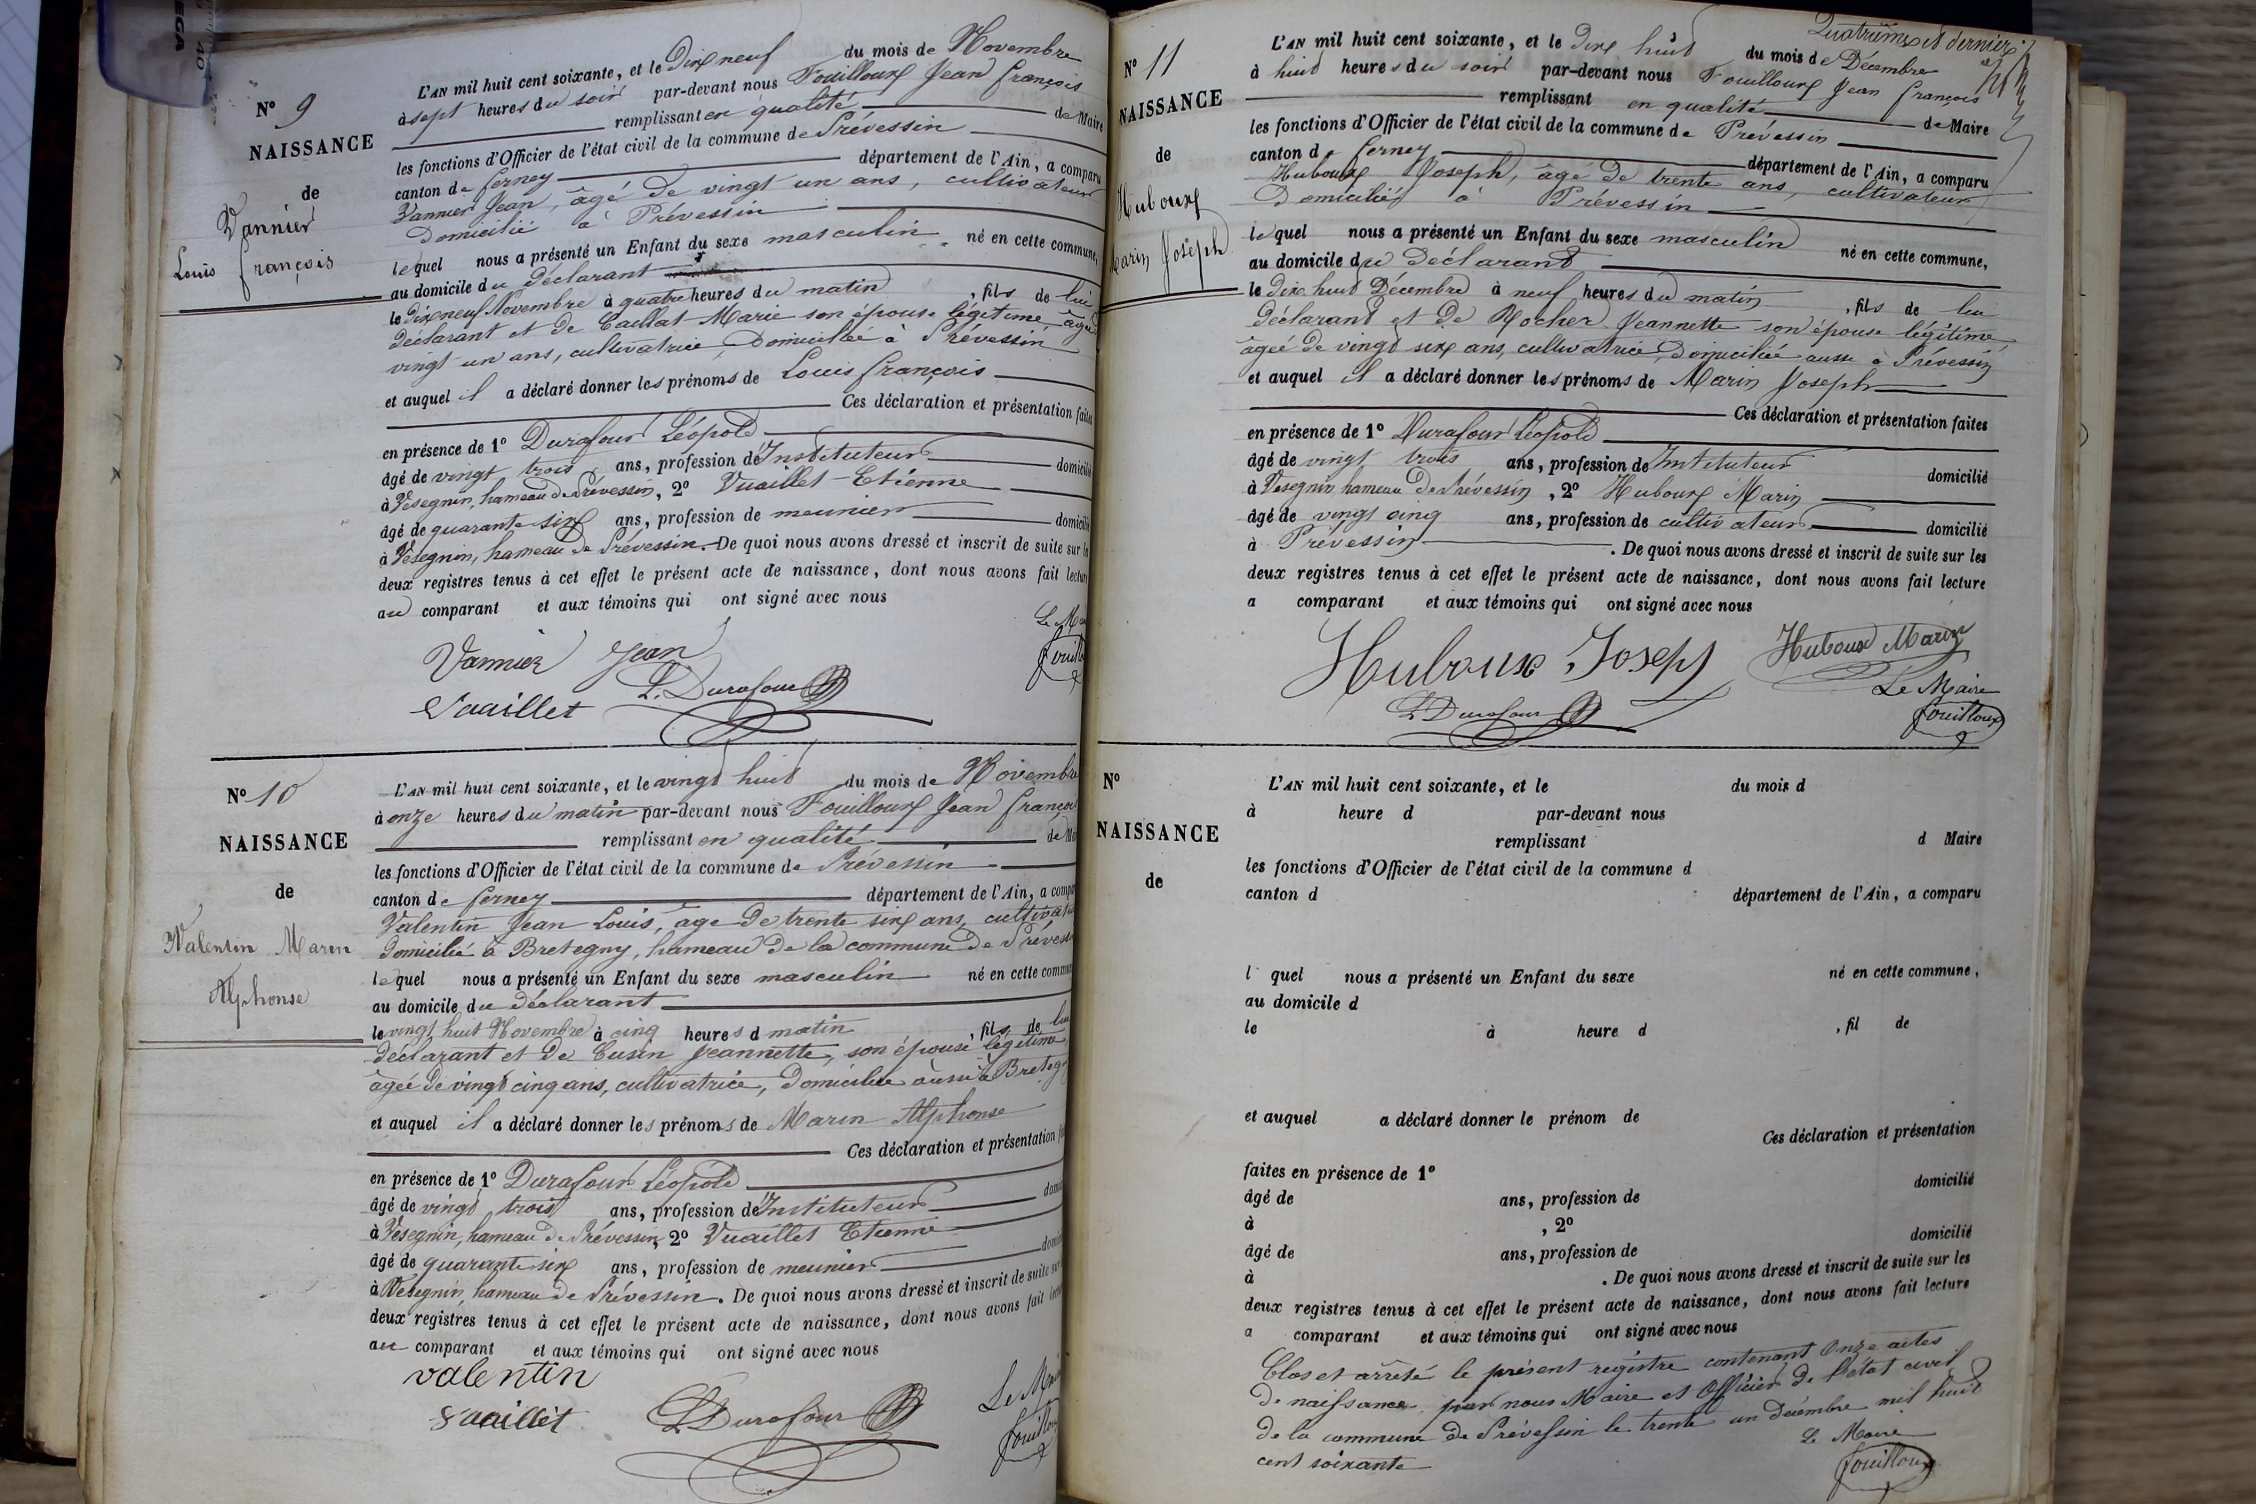 N° 9
NAISSANCE
de
Vannier
Louis François
L'AN mil huit cent soixante, et le Dix neuf du mois de Novembre
à sept heures du soir par-devant nous Fouilloux Jean François
remplissant en qualité de Maire
les fonctions d'Officier de l'état civil de la commune de Prévessin
canton de ferney département de l'Ain, a comparu
Vannier Jean, âgé de vingt un ans, cultivateur
domicilié à Prévessin
lequel nous a présenté un Enfant du sexe masculin né en cette commune,
au domicile du déclarant
le Dix neuf Novembre à quatre heures du matin, fils de lui
déclarant et de Caillat Marie son épouse légitime âgée
vingt un ans, cultivatrice, Domiciliée à Prévessin
et auquel il a déclaré donner les prénoms de Louis François
Ces déclaration et présentation faites
en présence de 1° Durafour Léopold
âgé de vingt trois ans, profession de Instituteur domicilié
à Vésegnin, hameau de Prévessin, 2° Vuaillet Etienne
âgé de quarante six ans, profession de meunier domicilié
à Vésegnin, hameau de Prévessin. De quoi nous avons dressé et inscrit de suite sur les
deux registres tenus à cet effet le présent acte de naissance, dont nous avons fait lecture
au comparant et aux témoins qui ont signé avec nous
Le
Vannier Jean
Vuaillet L. Durafour
N° 10
NAISSANCE
de
Valentin Marin
Alphonse
L'AN mil huit cent soixante, et le vingt huit du mois de Novembre
à onze heures du matin par-devant nous Fouilloux Jean François
remplissant en qualité de
les fonctions d'Officier de l'état civil de la commune de Prévessin
canton de ferney département de l'Ain, a comparu
Valentin Jean Louis, âgé de trente six ans, cultivateur
domicilié à Bretegny, hameau de la commune de Prévessin
lequel nous a présenté un Enfant du sexe masculin né en cette commune
au domicile du déclarant
le vingt huit Novembre à cinq heures d matin, fils de lui
déclarant et de Cusin Jeannette, son épouse légitime
âgée de vingt cinq ans, cultivatrice, Domiciliée aussi à Bretegny
et auquel il a déclaré donner les prénoms de Marin Alphonse
Ces déclaration et présentation
en présence de 1° Durafour Léopold
âgé de vingt trois ans, profession de Instituteur
à Vésegnin, hameau de Prévessin, 2° Vuaillet Etienne
âgé de quarante six ans, profession de meunier
à Vésegnin, hameau de Prévessin. De quoi nous avons dressé et inscrit de suite sur
deux registres tenus à cet effet le présent acte de naissance, dont nous avons fait lecture
au comparant et aux témoins qui ont signé avec nous
valentin
Vuaillet L. Durafour
Quatrième et dernier
N° 11
NAISSANCE
de
Huboux
Marin Joseph
L'AN mil huit cent soixante, et le Dix huit du mois de Décembre
à huit heures du soir par-devant nous Fouilloux Jean François
remplissant en qualité de Maire
les fonctions d'Officier de l'état civil de la commune de Prévessin
canton de ferney département de l'Ain, a comparu
Huboux Joseph, âgé de trente ans, cultivateur,
Domicilié à Prévessin
lequel nous a présenté un Enfant du sexe masculin né en cette commune,
au domicile du déclarant
le Dix huit Décembre à neuf heures du matin, fils de lui
déclarant et de Rocher Jeannette son épouse légitime
âgée de vingt six ans, cultivatrice, Domiciliée aussi à Prévessin
et auquel il a déclaré donner les prénoms de Marin Joseph
Ces déclaration et présentation faites
en présence de 1° Durafour Léopold
âgé de vingt trois ans, profession de Instituteur domicilié
à Vésegnin hameau de Prévessin, 2° Huboux Marin
âgé de vingt cinq ans, profession de cultivateur domicilié
à Prévessin. De quoi nous avons dressé et inscrit de suite sur les
deux registres tenus à cet effet le présent acte de naissance, dont nous avons fait lecture
a comparant et aux témoins qui ont signé avec nous
Huboux Joseph Huboux Marin
L. Durafour Le Maire
Fouilloux
N°
NAISSANCE
de
L'AN mil huit cent soixante, et le du mois d
à heure d par-devant nous
remplissant d Maire
les fonctions d'Officier de l'état civil de la commune d
canton d département de l'Ain, a comparu
l quel nous a présenté un Enfant du sexe né en cette commune,
au domicile d
le à heure d , fil de
et auquel a déclaré donner le prénom de
Ces déclaration et présentation
faites en présence de 1°
âgé de ans, profession de domicilié
à , 2°
âgé de ans, profession de domicilié
à . De quoi nous avons dressé et inscrit de suite sur les
deux registres tenus à cet effet le présent acte de naissance, dont nous avons fait lecture
a comparant et aux témoins qui ont signé avec nous
Clos et arrêté le présent registre contenant Onze actes
de naissance, par nous Maire et Officier de l'état civil
de la commune de Prévessin le trente un décembre mil huit
cent soixante
Le Maire
Fouilloux